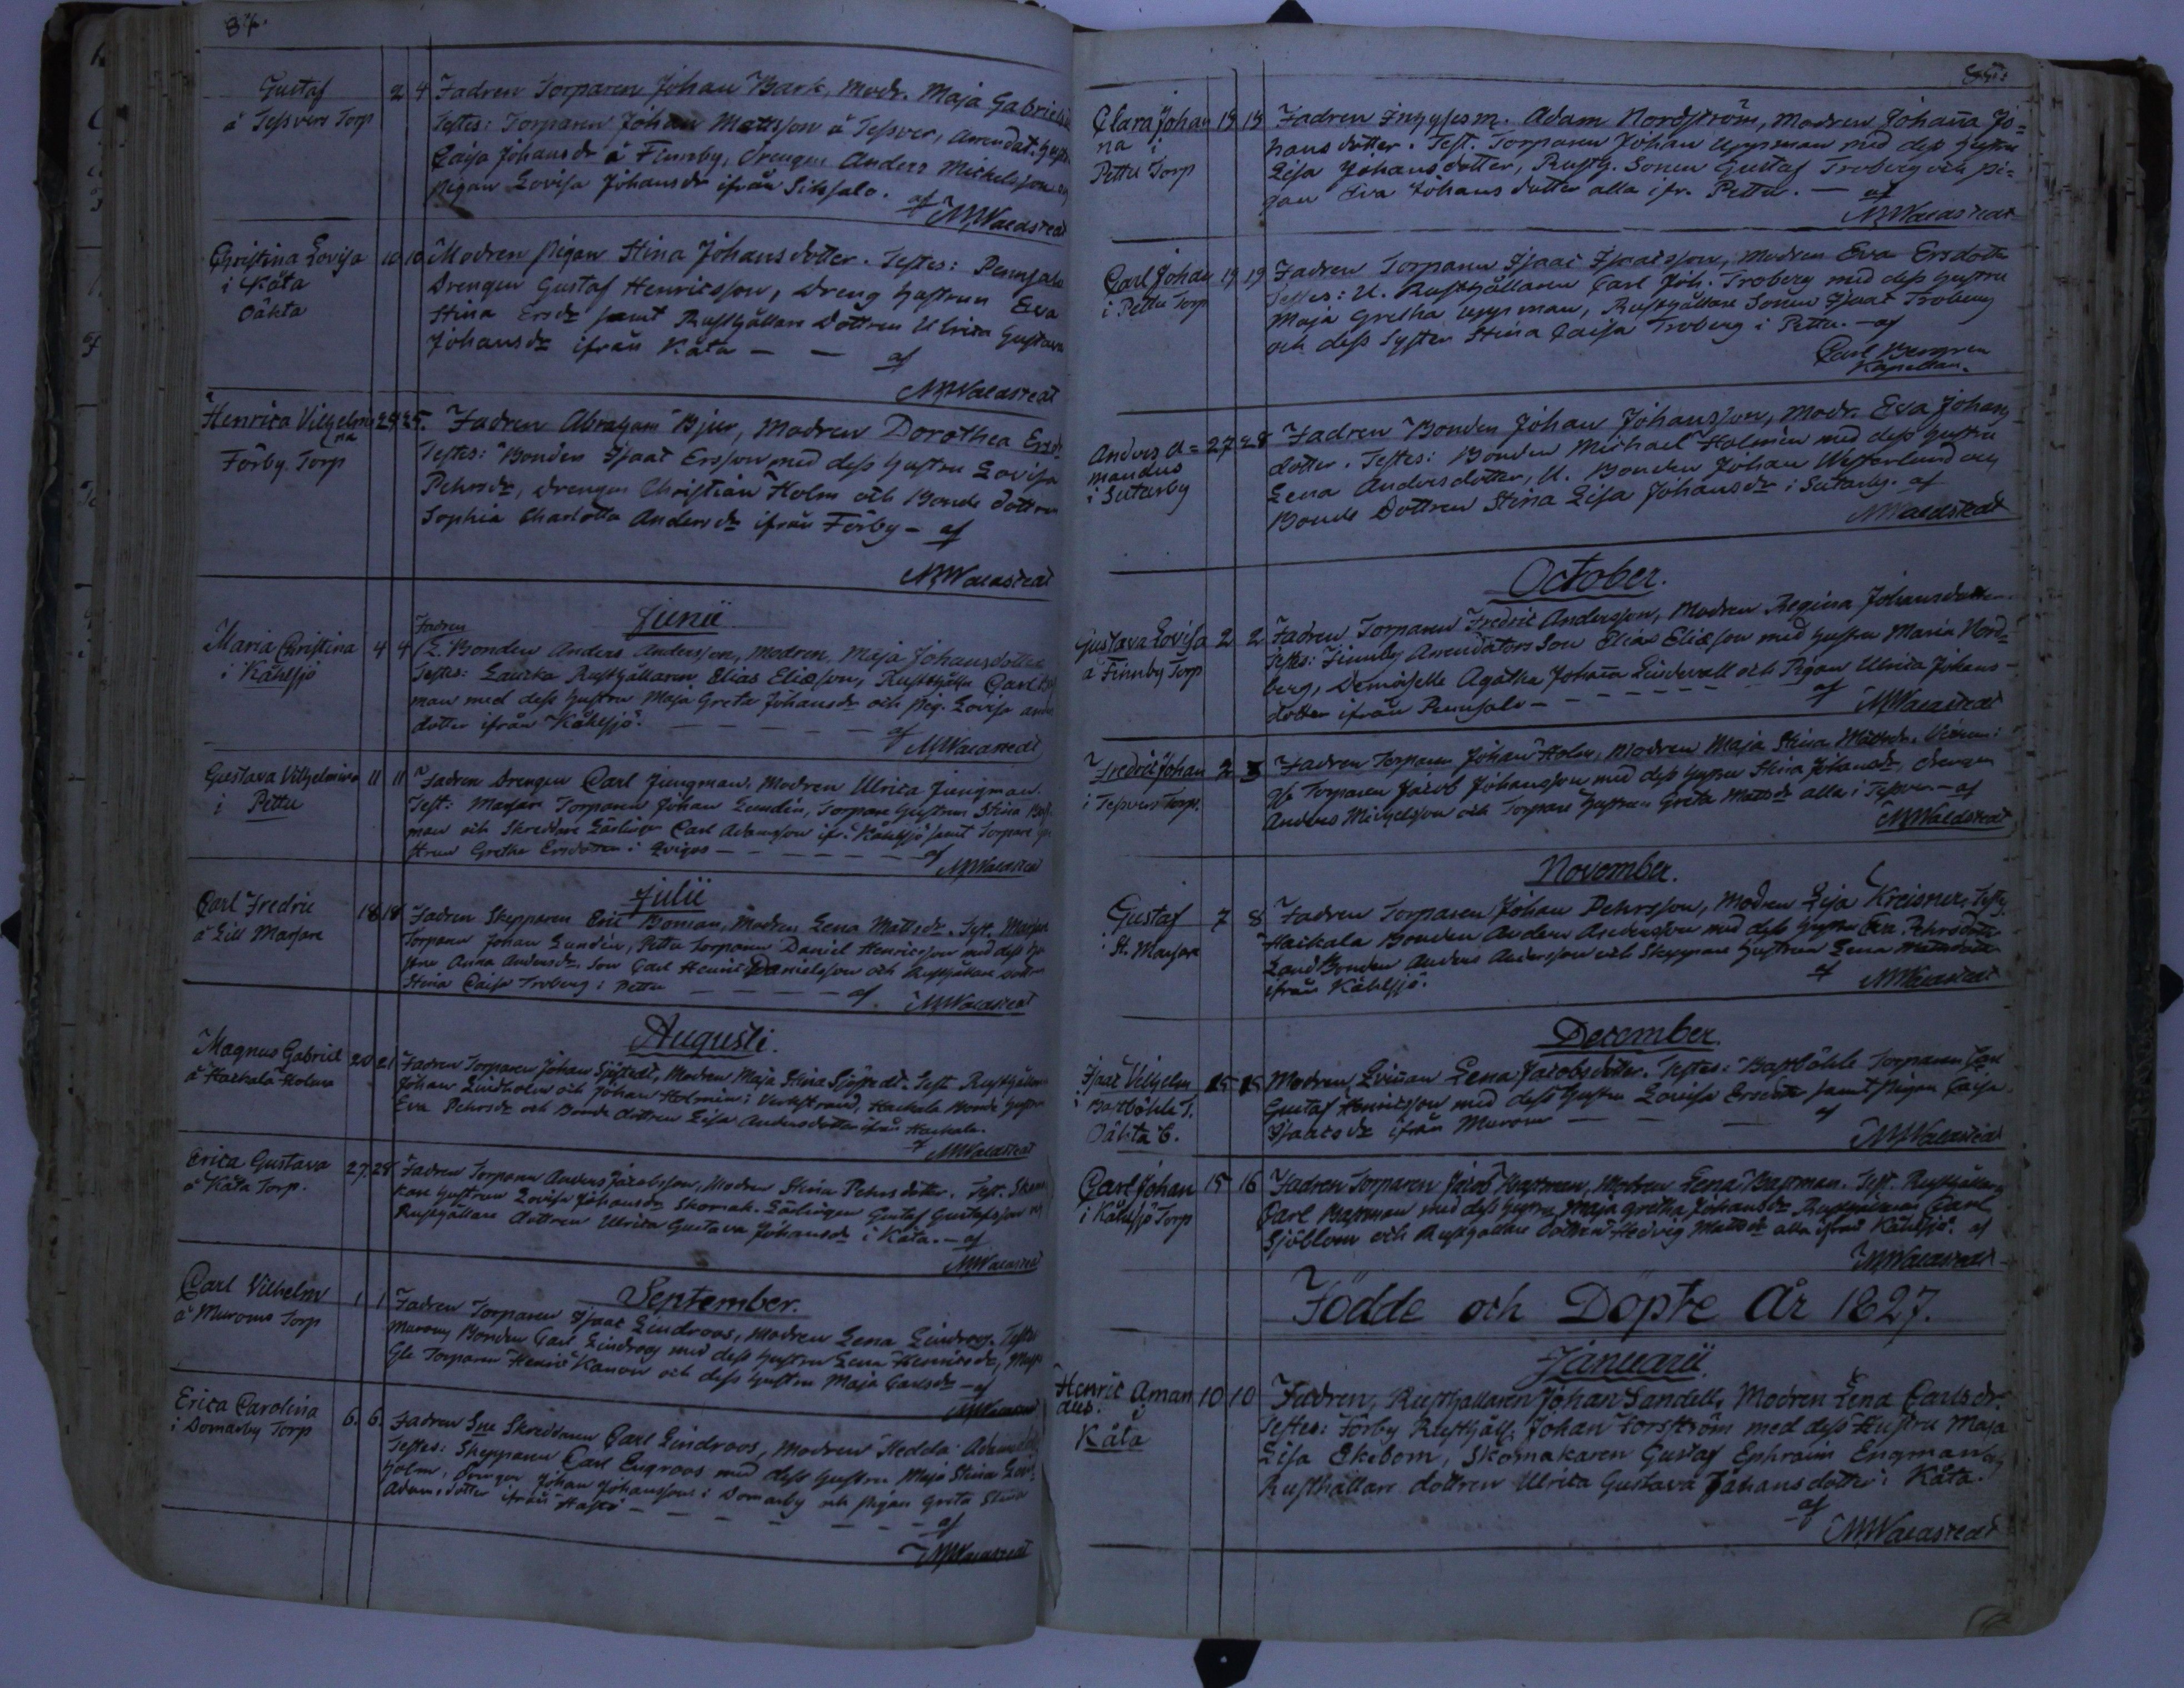 84.
Gustaf
å Tessvers Torp
2 4 Fadren Torparen Johan Bark, Modr. Maja Gabrielsd
Testes: Torparen Johan Mattsson å Tessver, Arrendat. hustr.
Caisa Johansdr å Finnby, Drengen Anders Michelsson och
Pigan Lovisa Johansdr ifrån Siksalo. af
Christina Lovisa
i Kåta
Oäkta
10 10 Modren Pigan Stina Johansdotter. Testes: Pennjala
Drengen Gustaf Henricsson, Dreng hustrun Eva
Stina Ersdr samt Rusthållare Dottren Ulrica Gustava
Johansdr ifrån Kåta — — af
Henrica Vilhelmi
na
Förby Torp
24 25. Fadren Abraham Bjur, Modren Dorothea Ersdr
Testes: Bonden Isaac Ersson med dess hustru Lovisa
Pehrsdr, Drengen Christian Holm och Bonde Dottren
Sophia Charlotta Andersdr ifrån Förby — af
Junii
Maria Christina
i Kåhlsjö
4 4 Fadren
Bonden Anders Andersson, Modren Maja Johansdotter
Testes: Rusthållaren Elias Eliasson, Rusthålln Carl
man med dess hustru Maja Greta Johansdr och Pig. Lovisa
dotter ifrån Kåhlsjö. — — — af
Gustava Vilhelmina
i
Pettu
11 11 Fadren Drengen Carl Jungman, Modren Ulrica Jungman.
Test: Torparen Johan Lundin, Torpare hustrun Stina
man och Skreddare Lärlingen Carl Adamsson ifr. Kåhlsjö samt Torpare
strun Gretha Ersdotter i — — — af
Julii
Carl Fredric
å Lill Marjare
18 18 Fadren Skepparen Eric Boman, Modren Lena Mattsdr. Test.
Torparen Johan Lundin, Pettu Torparen Daniel Henricsson med dess
stru Anna Andersdr, Son Carl Henric Danielsson och Rusthållare Dottren
Stina Caisa Troberg i Pettu — — — af
Augusti.
Magnus Gabriel
å Haekala Holma
20 21 Fadren Torparen Johan Sjöstedt, Modren Maja Stina Sjöstedt. Test Rusthållarn
Johan Lindholm och Johan Holmen i Verkstrand, Haekala Bonde hustrun
Eva Pehrsdr och Bonde dottren Lisa Andersdotter ifrån Haekala.
af
Erica Gustava
å Kåta Torp.
27. 28 Fadren Torparen Anders Jacobsson, Modren Stina Pehrsdotter. Test.
kare hustrun Lovisa Johansdr, Skomak. Lärlingen Gustaf Gustafsson och
Rusthållare dottren Ulrica Gustava Johansdr i Kåta. — af
September.
Carl Vilhelm
å Muroms Torp
1 1 Fadren Torparen Isaac Lindroos, Modren Lena Lindroos. Testes
Murom Bonden Carl Lindroos med dess hustru Lena Henricsdr,
Torparen Henric Kanow och dess hustru Maja Carlsdr — af
Erica Carolina
i Domarby Torp
6. 6. Fadren Sne Skreddaren Carl Lindroos, Modren Hedda
Testes: Skepparen Carl Engroos med dess hustru Maja Stina
holm, Drengen Johan Johansson i Domarby och Pigan Greta Stina
Adamsdotter ifrån — — — af
85.
Clara Johan
na i
Pettu Torp
19 19 Fadren Adam Nordström, Modren Johanna Jo=
hansdotter. Test. Torparen Johan Uppman med dess hustru
Lisa Johansdotter, Rusth. Sonen Gustaf Troberg och Pi=
gan Eva Johansdotter alla ifr. Pettu. — af
Carl Johan
i Pettu Torp
19 19 Fadren Torparen Isaac Isaacsson, Modren Eva Ersdotter
Testes: U. Rusthållaren Carl Joh. Troberg med dess hustru
Maja Gretha Uppman, Rusthållare Sonen Isaac Troberg
och dess Syster Stina Caisa Troberg i Pettu. — af
Carl Bergren
Kapellan.
Anders A=
mandus
i Sutarby
27 28 Fadren Bonden Johan Johansson, Modr. Eva Johans
dotter. Testes: Bonden Michael Holmen med dess hustru
Lena Andersdotter, U. Bonden Johan Westerlund och
Bonde Dottren Stina Lisa Johansdr i Sutarby. af
October.
Gustava Lovisa
å Finnby Torp
2 2 Fadren Torparen Fredric Andersson, Modren Regina Johansdotter
Testes: Finnby Arrendators Son Elias Eliasson med hustru Maria Nord=
berg, Demoiselle Agatha Johanna Lindevall och Pigan Ulrica Johans
dotter ifrån Pennsalo — — — af
Fredric Johan
i Tessvers Torp.
2 3 Fadren Torparen Johan Holm, Modren Maja Stina Mattsdr.
Torparen Jacob Johansson med dess hustru Stina Johansdr, Drengen
Anders Michelsson och Torpare hustrun Greta Mattsdr alla i Tessver. — af
November.
Gustaf
i St. Marjare
7 8 Fadren Torparen Johan Pehrsson, Modren Lisa Kreisner, Test.
Haekala Bonden Anders Andersson med dess hustru Eva Pehrsdotter
Land Bonden Anders Andersson och Skeppare hustrun Lena Mattsdotter
ifrån Kåhlsjö. af
December.
Isaac Vilhelm
i Bastböhle T.
Oäkta
15 15 Modren Qvinnan Lena Jacobsdotter. Testes: Bastböhle Torparen Carl
Gustaf Henricsson med dess hustru Lovisa Ersdotter samt Pigan Caisa
Isaacsdr ifrån Murom — — — af
Carl Johan
i Kåhlsjö Torp
15 16 Fadren Torparen Jacob Bastman, Modren Lena Bastman. Test. Rusthållaren
Carl Bastman med dess hustru Maja Gretha Johansdr Carl
Sjöblom och Rusthållare dottren Hedvig Mattsdr alla ifrån Kåhlsjö. af
Födde och Döpte År 1827.
Januarii.
Henric Aman
dus. i
Kåta
10 10 Fadren, Rusthållaren Johan Sandell, Modren Lena Carlsdr.
Testes: Förby Rusthåll. Johan Forsström med dess Hustru Maja
Lisa Ekebom, Skomakaren Gustaf Ephraim Engman och
Rusthållare dottren Ulrica Gustava Johansdotter i Kåta.
af